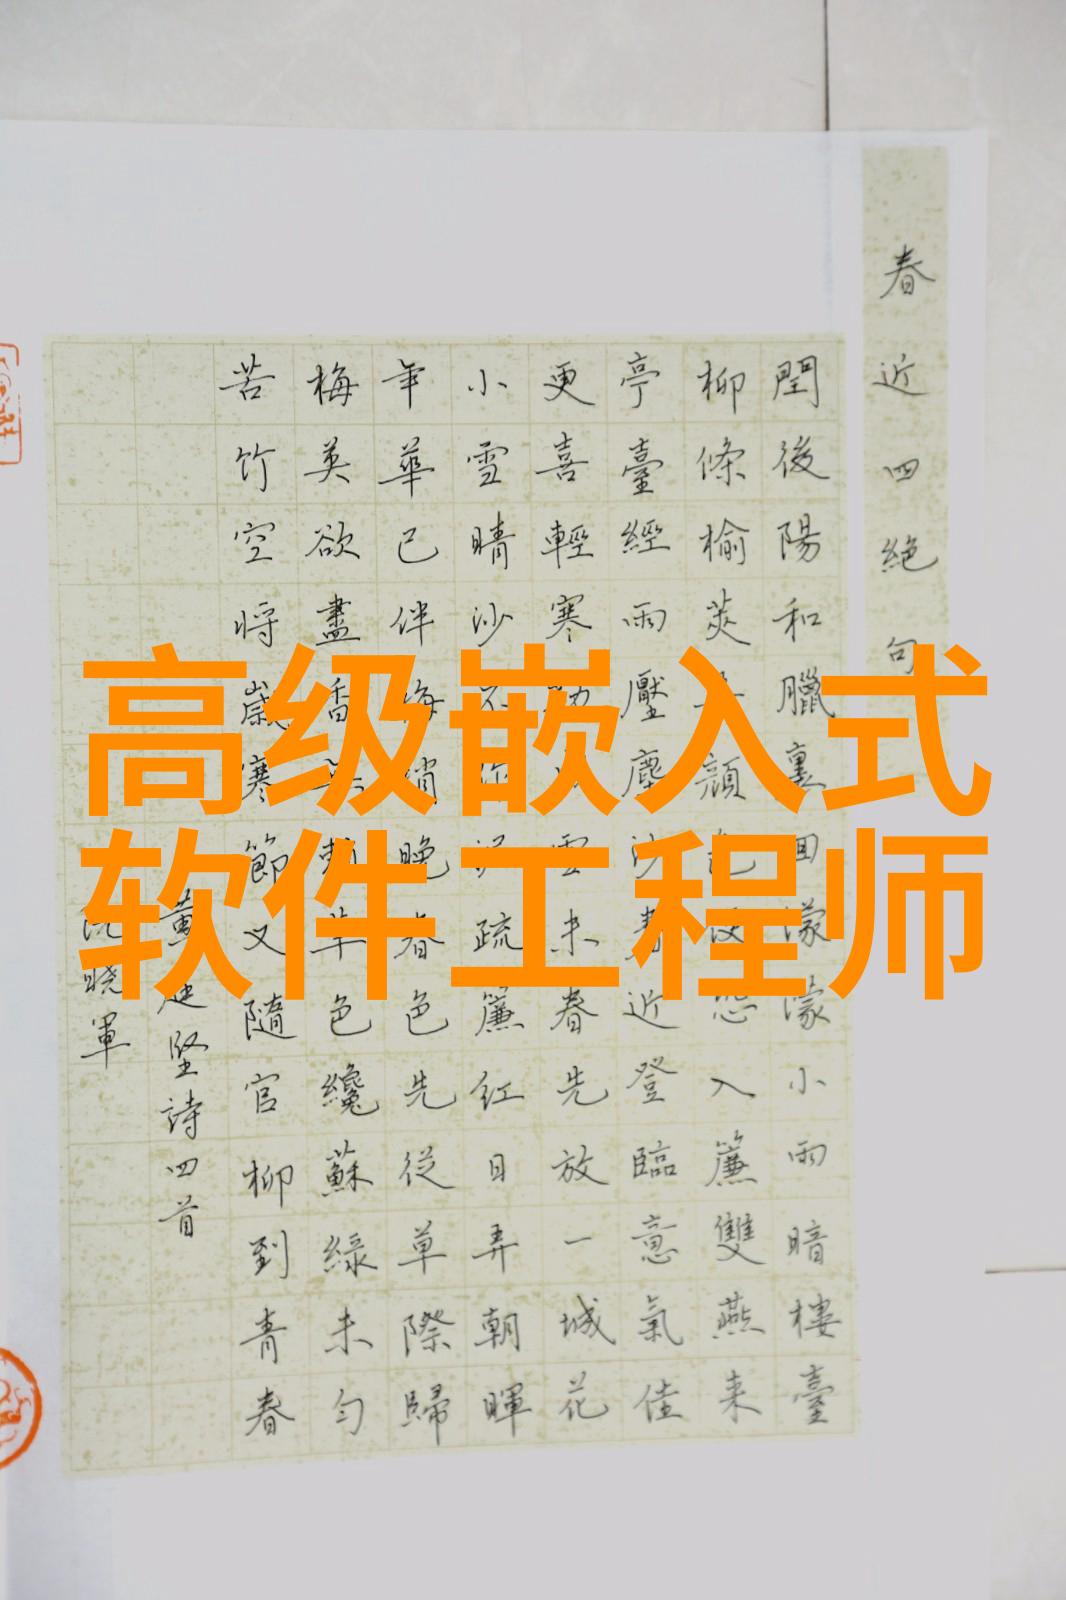 高级嵌入式
软件工程师
春近四絕句
閏後陽和臘裏回濛濛小雨暗樓臺
柳條榆莢顏入簾雙燕來
亭臺經雨壓塵沙春近登臨意氣佳
更喜輕寒雪未春先放一城花
小雪晴沙不作泥疏簾紅日弄朝暉
年華已伴梅梢晚春色先從草際歸
梅英欲盡香賴草色纔蘇綠未勻
苦竹空將歲寒節又隨官柳到青春
黃庭堅詩四首
曉軍